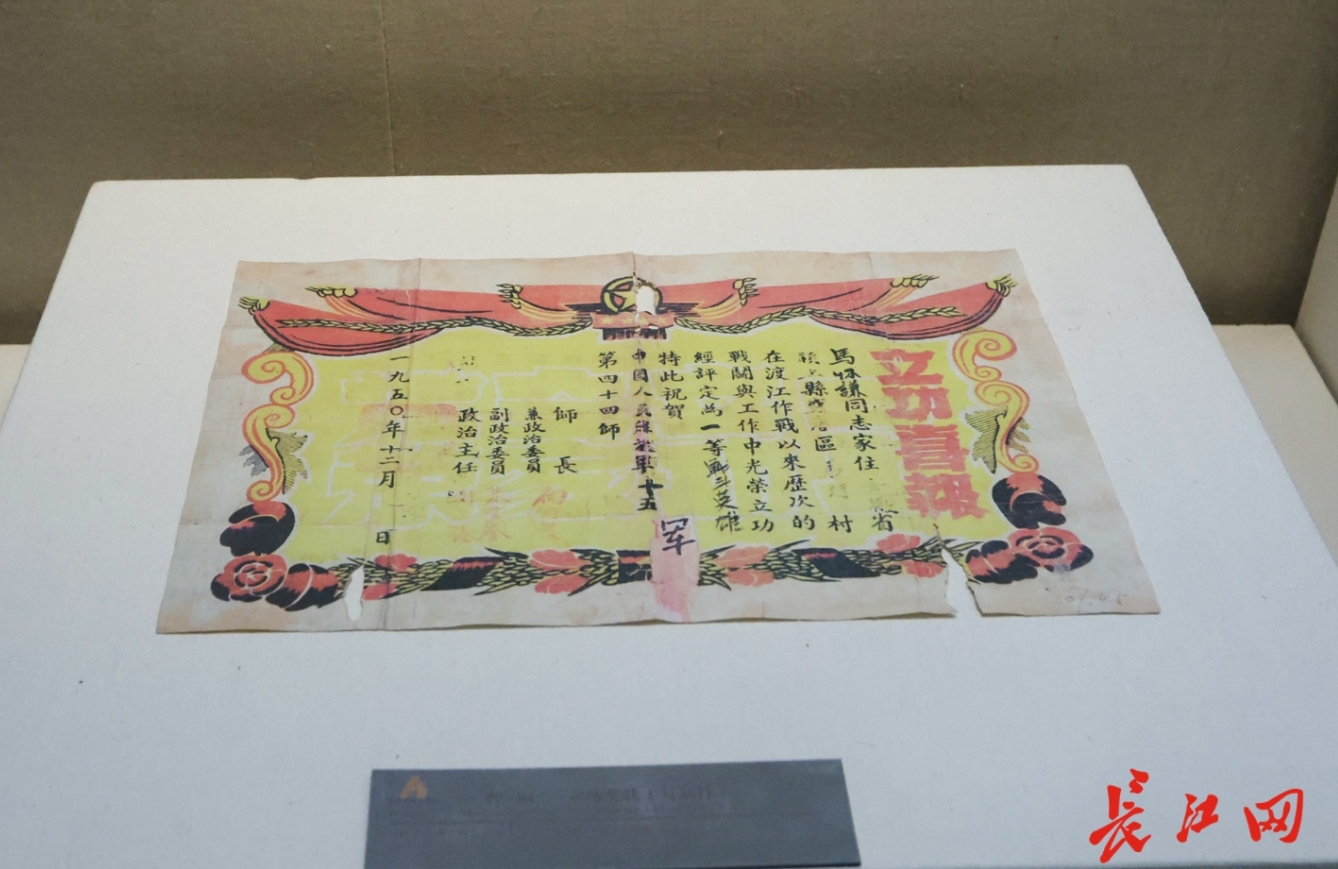 立功喜報
馬 謙同志家住 省
縣 區 村
在渡江作戰以來歷次的
戰鬪與工作中光榮立功
經評定為一等戰斗英雄
特此祝賀
中國人民 軍十五軍
第四十四師
師長
兼政治委員
副政治委員
政治主任
一九五〇年十二月 日
长江网